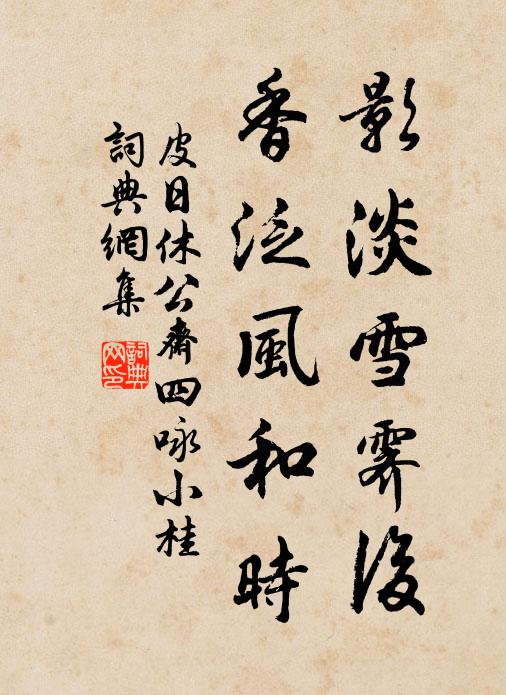 影淡雪霽後
香泛風和時
皮日休公齋四咏小桂
詞典網集
詞典网印